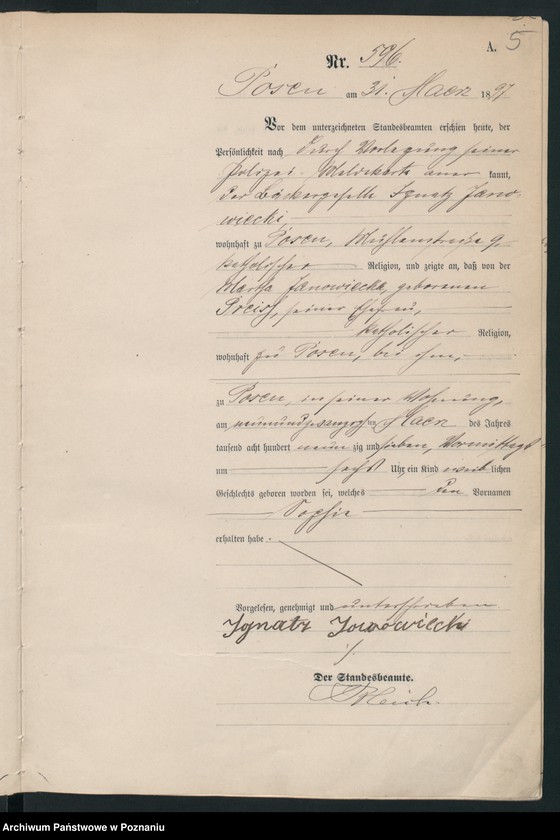 A. 5
Nr. 596.
Posen am 31. Maerz 1897
Vor dem unterzeichneten Standesbeamten erschien heute, der
Persönlichkeit nach durch Vorlegung seiner
Polizei-Meldekarte aner kannt,
der Bäckergeselle Ignatz Jano-
wiecki,
wohnhaft zu Posen, Mühlenstraße 9
katholischer Religion, und zeigte an, daß von der
Martha Janowiecka, geborenen
Preiss, seiner Ehefrau,
katholischer Religion,
wohnhaft zu Posen, bei ihm,
zu Posen, in seiner Wohnung,
am neunundzwanzigsten Maerz des Jahres
tausend acht hundert neun zig und sieben, Vormittags
um sechs Uhr, ein Kind weib lichen
Geschlechts geboren worden sei, welches den Vornamen
Sophie
erhalten habe.
Vorgelesen, genehmigt und unterschrieben
Ignatz Janowiecki
Der Standesbeamte.
Archiwum Państwowe w Poznaniu